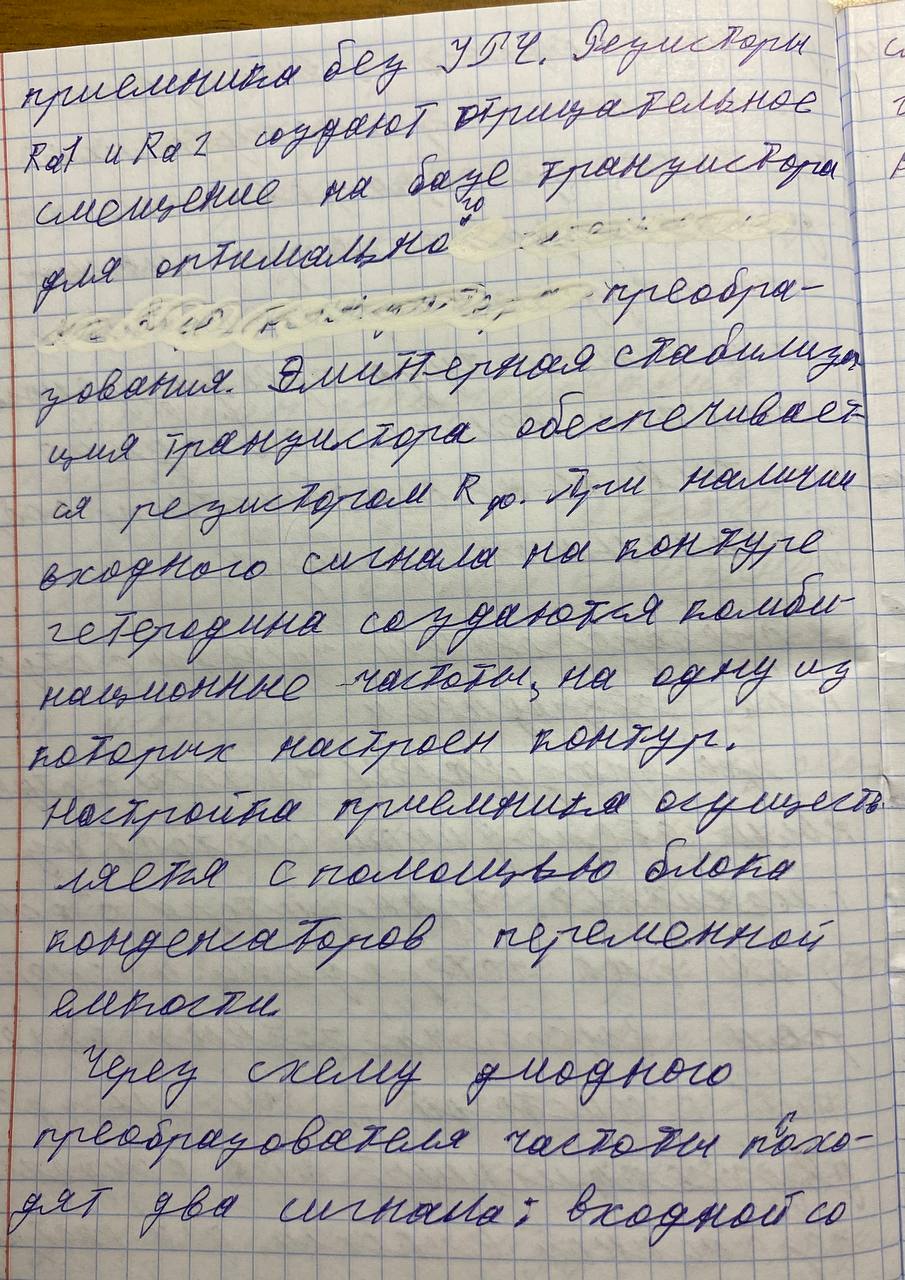 приемника без УРЧ. Резисторы
Rа1 и Rа2 создают отрицательное
смещение на базе транзистора
для оптимального
преобра-
зования. Эмиттерная стабилиза-
ция транзистора обеспечивает-
ся резистором Rф. При наличии
входного сигнала на контуре
гетеродина создаются комби-
национные частоты, на одну из
которых настроен контур.
Настройка приемника осуществ-
ляется с помощью блока
конденсаторов переменной
емкости.
Через схему диодного
преобразователя частоты прохо-
дят два сигнала: входной со